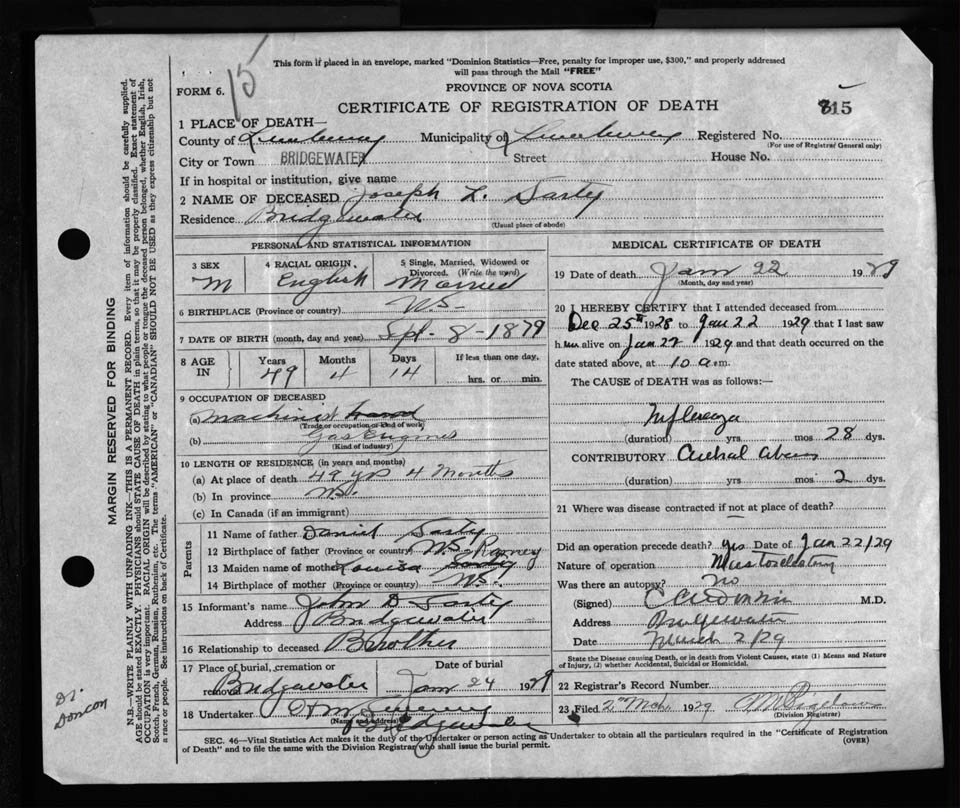 This form if placed in an envelope, marked "Dominion Statistics—Free, penalty for improper use, $300," and properly addressed
will pass through the Mail "FREE"
15
FORM 6.
PROVINCE OF NOVA SCOTIA
CERTIFICATE OF REGISTRATION OF DEATH
815
1 PLACE OF DEATH—
County of Lunenburg Municipality of Lunenburg Registered No.
(For use of Registrar General only)
City or Town BRIDGEWATER Street House No.
If in hospital or institution, give name
2 NAME OF DECEASED Joseph L. Sarty
Residence Bridgewater
(Usual place of abode)
PERSONAL AND STATISTICAL INFORMATION
3 SEX 4 RACIAL ORIGIN 5 Single, Married, Widowed or
Divorced. (Write the word)
M English Married
6 BIRTHPLACE (Province or country) N.S.
7 DATE OF BIRTH (month, day and year) Sept. 8-1879
8 AGE IN Years Months Days If less than one day,
49 4 14 hrs. or min.
9 OCCUPATION OF DECEASED
(a) Machinist
(Trade or occupation or kind of work)
(b) Gas Engines
(Kind of industry)
10 LENGTH OF RESIDENCE (in years and months)
(a) At place of death 49 yrs 4 Months
(b) In province N.S.
(c) In Canada (if an immigrant)
Parents
11 Name of father Daniel Sarty
12 Birthplace of father (Province or country) N.S.
13 Maiden name of mother Louisa
14 Birthplace of mother (Province or country) N.S.
15 Informant's name John D Sarty
Address Bridgewater
16 Relationship to deceased Brother
17 Place of burial, cremation or Date of burial
removal Bridgewater Jan 24 1929
18 Undertaker
(Name and address)
Bridgewater
MEDICAL CERTIFICATE OF DEATH
19 Date of death Jan 22 1929
(Month, day and year)
20 I HEREBY CERTIFY that I attended deceased from
Dec 25th 1928 to Jan 22 1929 that I last saw
him alive on Jan 22 1929 and that death occurred on the
date stated above, at 10 a.m.
The CAUSE of DEATH was as follows:—
Influenza
(duration) yrs mos 28 dys.
CONTRIBUTORY Cerebral Abscess
(duration) yrs mos 2 dys.
21 Where was disease contracted if not at place of death?
Did an operation precede death? yes Date of Jan 22/29
Nature of operation
Was there an autopsy? No
(Signed) M.D.
Address Bridgewater
Date March 2/29
State the Disease causing Death, or in death from Violent Causes, state (1) Means and Nature
of Injury, (2) whether Accidental, Suicidal or Homicidal.
22 Registrar's Record Number
23 Filed 2nd Mch. 1929
(Division Registrar)
SEC. 46—Vital Statistics Act makes it the duty of the Undertaker or person acting as Undertaker to obtain all the particulars required in the "Certificate of Registration
of Death" and to file the same with the Division Registrar who shall issue the burial permit. (OVER)
MARGIN RESERVED FOR BINDING
N.B.—WRITE PLAINLY WITH UNFADING INK—THIS IS A PERMANENT RECORD. Every item of information should be carefully supplied.
AGE should be stated EXACTLY. PHYSICIANS should STATE CAUSE OF DEATH in plain terms, so that it may be properly classified. Exact statement of
OCCUPATION is very important. RACIAL ORIGIN will be described by stating to what people or tongue the deceased person belonged, whether English, Irish,
Scotch, French, German, Russian, Ruthenian, etc. The terms "AMERICAN" or "CANADIAN" SHOULD NOT BE USED as they express citizenship but not
a race or people. See instructions on back of Certificate.